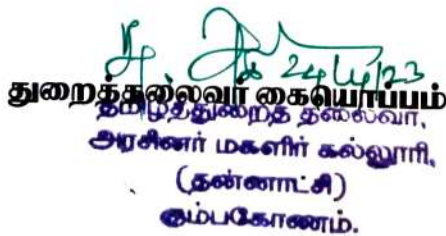 24/4/23
துறைத்தலைவர் கையொப்பம்
தமிழ்த்துறைத் தலைவர்,
அரசினர் மகளிர் கல்லூரி,
(தன்னாட்சி)
கும்பகோணம்.